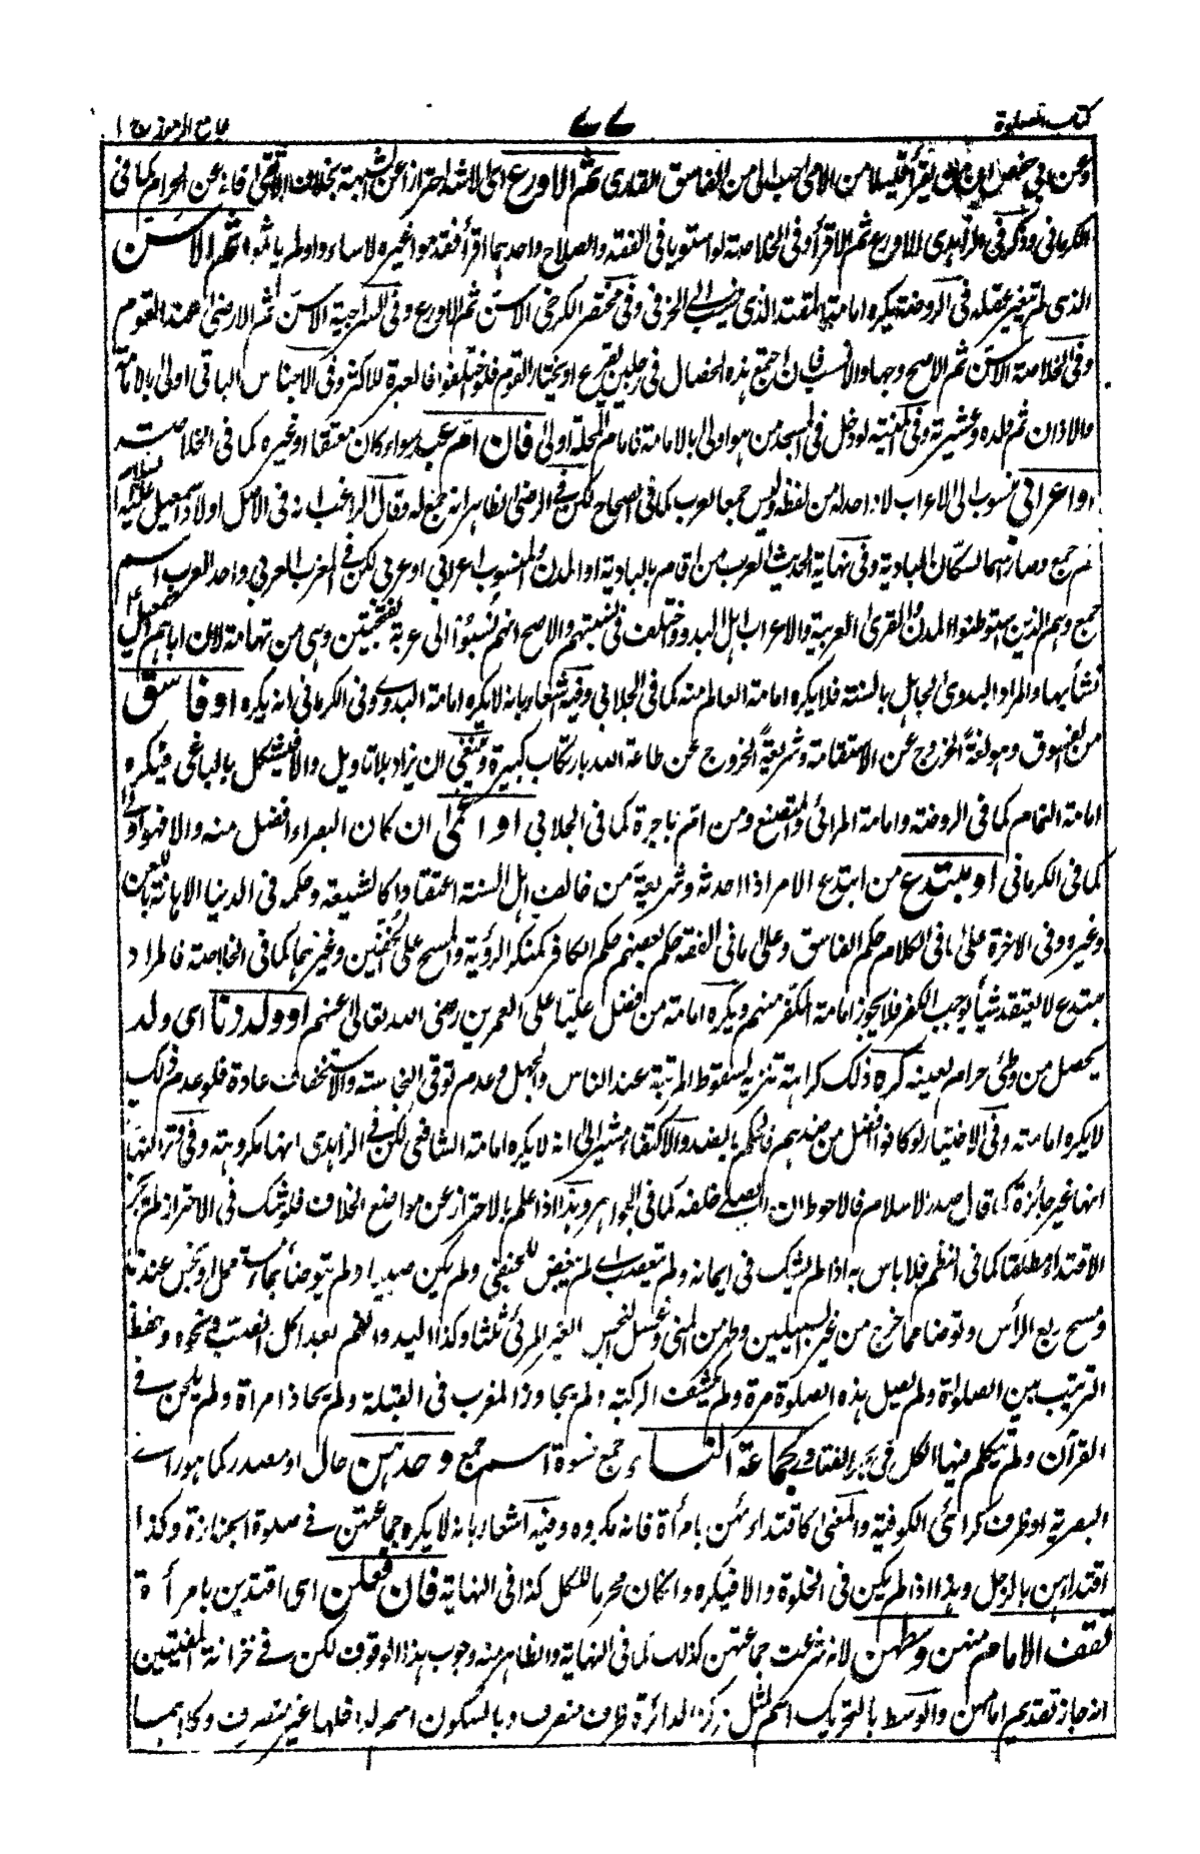 كتاب الصلوة ٧٧ جامع الرموز ج ١
وعن ابي حفص ان من يقرأ قليلا من الامي احب الي من الفاسق القاري ثم الاورع اي الاشد احترازا عن الشبهة بخلاف الاتقى عن الحرام كما في
الكرماني وذكر في الزاهدي الاورع ثم الاقرأ وفي الخلاصة لو استويا في الفقه والصلاح واحدهما اقرأ فقدموا غيره لاساءوا ولم ياثموا ثم الاسن
الذي لم يتغير عقله في الروضة يكره امامة الذي وفي مختصر الكرخي الاسن ثم الاورع وفي السراجية الاسن ثم الارضى عند القوم
وفي الخلاصة الاسن ثم الاصبح وجها والانسب فان اجتمع هذه الخصال في رجلين يقرع او يختار القوم فلو اختلفوا فالعبرة للاكثر وفي الاجناس الباقي اولى بالامامة
والاذان ثم ولده وعشيرته وفي المنية لو دخل في المسجد من هو اولى بالامامة فامام المحلة اولى فان ام عبد سواء كان معتقا او غيره كما في الخلاصة
او اعرابي منسوب الى الاعراب لا واحد له من لفظه وليس جمعا لعرب كما في الصحاح لكن في الرضي الظاهر انه جمع له وقال الراغب انه في الاصل اولاد اسمعيل عليه السلام
ثم جمع وصار اسما لسكان البادية وفي نهاية الحديث العرب من اقام بالبادية او المدن والمنسوب اعرابي او عربي لكن في المغرب العربي واحد العرب اسم
جمع وهم الذين استوطنوا المدن والقرى العربية والاعراب اهل البدو واختلف في نسبتهم والاصح انهم نسبوا الى عربة بفتحتين وهي من تهامة لان اباهم اسمعيل
نشأ بها والمراد البدوي الجاهل بالسنة فلا يكره امامة العالم منه كما في الجلابي وفيه اشعار بانه لا يكره امامة البدوي وفي الكرماني انه يكره او فاسق
من الفسوق وهو لغة الخروج عن الاستقامة وشريعة الخروج عن طاعة الله بارتكاب كبيرة وينبغي ان يزاد بلا تاويل والا فيشكل بالباغي فيكره
امامة النمام كما في الروضة وامامة المرائي والمتصنع ومن ام باجرة كما في الجلابي او اعمى ان كان البصراء افضل منه والا فهو اولى
كما في الكرماني او مبتدع من ابتدع الامر اذا احدثه وشريعة من خالف اهل السنة اعتقادا كالشيعة وحكمه في الدنيا الاهانة باللعن
وغيره وفي الاخرة على ما في الكلام حكم الفاسق وعلى ما في الفقه حكم بعضهم حكم الكافر كمنكر الرؤية والمسح على الخفين وغيرهما كما في الخلاصة فالمراد
مبتدع لا يعتقد شيأ يوجب الكفر فلا يجوز امامة المكفر منهم ويكره امامة من فضل عليا على العمرين رضي الله تعالى عنهم او ولد زنا اي ولد
يحصل من وطئ حرام لعينه كره ذلك كراهة تنزيه لسقوط المرتبة عند الناس والجهل وعدم توقي النجاسة والاستخفاف عادة فلو عدم ذلك
لا يكره امامته وفي الاختيار لو كانوا افضل من ضدهم فالحكم بالضد والاكتفاء مشير الى انه لا يكره امامة الشافعي لكن في الزاهدي انها مكروهة وفي
انها غير جائزة كما قال صدر الاسلام فالاحوط ان لا يصلي خلفه كما في الجواهر وهذا اذا علم بالاحتراز عن مواضع الخلاف فلو شك في الاحتراز لم يجز
الاقتداء مطلقا كما في النظم فلا باس به اذا لم يشك في ايمانه ولم يتعصب اي لم يبغض للحنفي ولم يكن ولم يتوضأ بماء مستعمل او نجس عندنا
ومسح ربع الرأس وتوضأ مما خرج من غير السبيلين وطهر من المني وغسل النجس الغير المرئي ثلثا وكذا اليد والفم بعد اكل الضب ونحوه وحفظ
الترتيب بين الصلوات ولم يصل هذه الصلوة مرة ولم يكشف الركبة ولم يجاوز المغرب في القبلة ولم يحاذ امرأة ولم يلحن في
القرآن ولم يتكلم فيها الكل في بحر الفتاوى كجماعة النساء جمع نسوة اسم جمع وحدهن حال او مصدر كما هو رأي
البصرية او ظرف كرأي الكوفية والمعنى كاقتدائهن بامرأة فانه مكروه وفيه اشعار بانه لا يكره جماعتهن في صلوة الجنازة وكذا
اقتداؤهن بالرجل وهذا اذا لم يكن في الخلوة والا فيكره وان كان محرما للكل كذا في النهاية فان فعلن اي اقتدين بامرأة
تقف الامام منهن وسطهن لانه شرعت جماعتهن كذلك كما في النهاية والظاهر منه وجوب هذا الوقوف لكن في خزانة المفتيين
انه جاز تقديم امامهن والوسط بالتحريك اسم لمثل مركز الدائرة ظرف منصرف وبالسكون اسم لداخلها غير منصرف وكلاهما